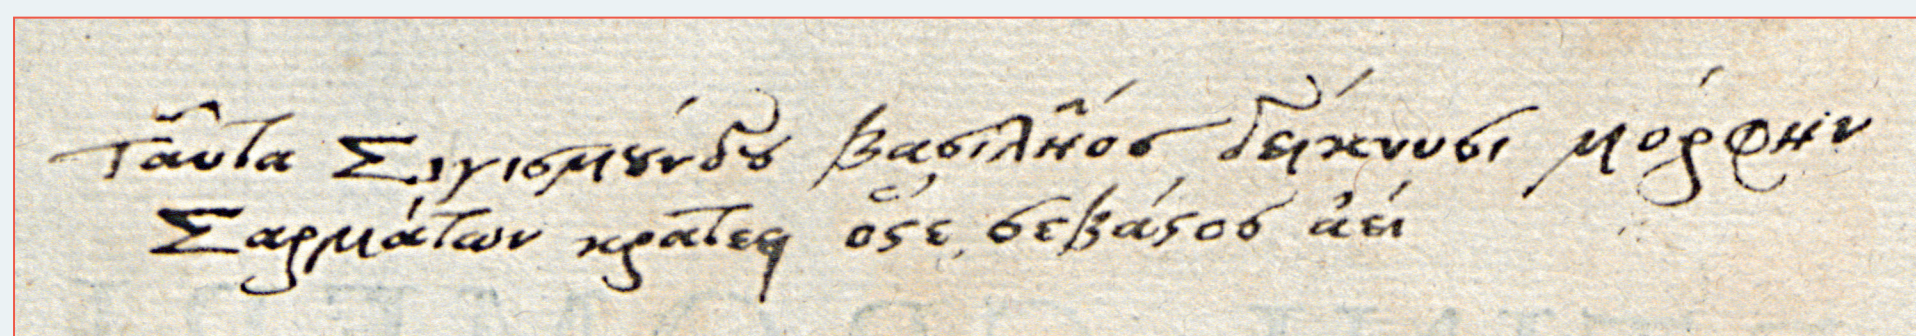 Ταῦτα Σιγισμȣ́νδȣ βασιλῆός δείκνυσι μόρφην
Σαρμάτων κρατεῖ ὅϛε σεβάϛος ἀεί